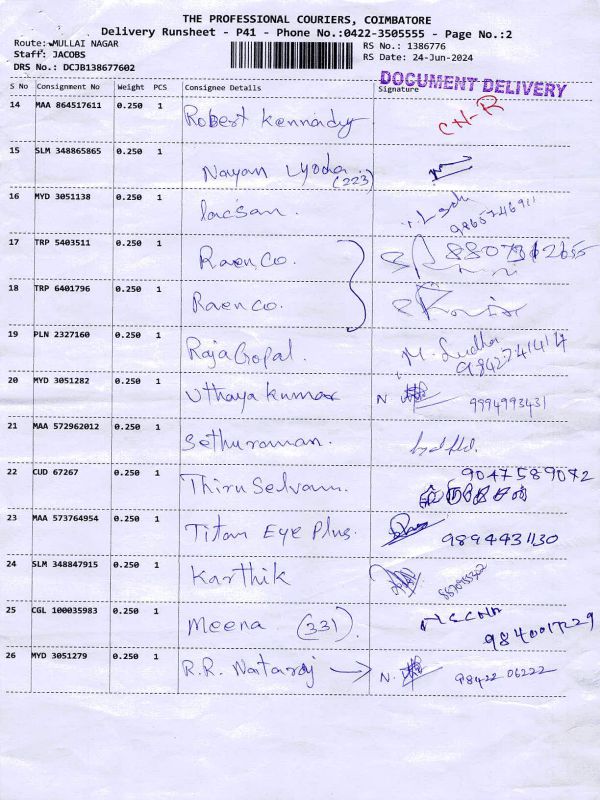 THE PROFESSIONAL COURIERS, COIMBATORE
Delivery Runsheet - P41 - Phone No.:0422-3505555 - Page No.:2
Route: MULLAI NAGAR
Staff: JACOBS
DRS No.: DCJB138677602
RS No.: 1386776
RS Date: 24-Jun-2024
DOCUMENT DELIVERY
S No Consignment No Weight PCS Consignee Details Signature
14 MAA 864517611 0.250 1 Robert Kennady CH-R
15 SLM 348865865 0.250 1 Nayan (223)
16 MYD 3051138 0.250 1 lacsan. 9865746911
17 TRP 5403511 0.250 1 Raen.Co.
18 TRP 6401796 0.250 1 Raenco.
19 PLN 2327160 0.250 1 RajaGopal. M. Sudha 9842741414
20 MYD 3051282 0.250 1 Uthayakumar N 9994993431
21 MAA 572962012 0.250 1 Sethuraman.
22 CUD 67267 0.250 1 ThiruSelvam. 9047589072
23 MAA 573764954 0.250 1 Titan Eye Plus. 9894431130
24 SLM 348847915 0.250 1 Karthik
25 CGL 100035983 0.250 1 Meena (331)
26 MYD 3051279 0.250 1 R.R. Nataraj → N. 98422 06222